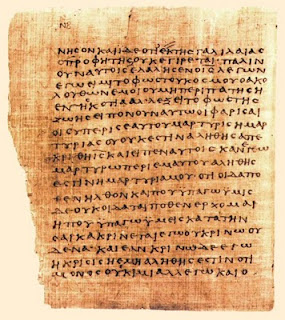 ΝΗϹΟΝΚΑΙΙΔΕΟΤΙΕΚΤΗϹΓΑΛΙΛΑΙΑϹ
ΟΠΡΟΦΗΤΗϹΟΥΚΕΓΙΡΕΤΑΙ· ΠΑΛΙΝ
ΟΥΝΑΥΤΟΙϹΕΛΑΛΗϹΕΝΟΙϹΛΕΓΩΝ
ΕΓΩΕΙΜΙΤΟΦΩϹΤΟΥΚΟϹΜΟΥΟΑΚΟ
ΛΟΥΘΩΝΕΜΟΙΟΥΜΗΠΕΡΙΠΑΤΗϹΗ
ΕΝΤΗϹΚΟΤΙΑΑΛΛΕΞΕΙΤΟΦΩϹΤΗϹ
ΖΩΗϹΕΙΠΟΝΟΥΝΑΥΤΩΟΙΦΑΡΙϹΑΙ
ΟΙϹΥΠΕΡΙϹΕΑΥΤΟΥΜΑΡΤΥΡΙϹΗΜΑΡ
ΤΥΡΙΑϹΟΥΟΥΚΕϹΤΙΝΑΛΗΘΗϹΑΠΕ
ΚΡΙΘΗΙϹΚΑΙΕΙΠΕΝΑΥΤΟΙϹΚΑΝΕΓΩ
ΜΑΡΤΥΡΩΠΕΡΙΕΜΑΥΤΟΥΑΛΗΘΗϹ
ΕϹΤΙΝΗΜΑΡΤΥΡΙΑΜΟΥΟΤΙΟΙΔΑΠΟ
ΘΕΝΗΛΘΟΝΚΑΙΠΟΥΥΠΑΓΩΥΜΙϹ
ΔΕΟΥΚΟΙΔΑΤΑΙΠΟΘΕΝΕΡΧΟΜΑΙ
ΗΠΟΥΥΠΑΓΩΥΜΕΙϹΚΑΤΑΤΗΝ
ϹΑΡΚΑΚΡΙΝΕΤΑΙΕΓΩΟΥΚΡΙΝΩΟΥ
ΔΕΝΑΚΑΙΕΑΝΚΡΙΝΩΔΕΕΓΩ
ΗΚΡΙϹΙϹΗΕΜΗΑΛΗΘΗϹΕϹΤΙΝΟΤΙ
ΜΟΝΟϹΟΥΚΙΜΙΑΛΛΕΓΩΚΑΙΟ